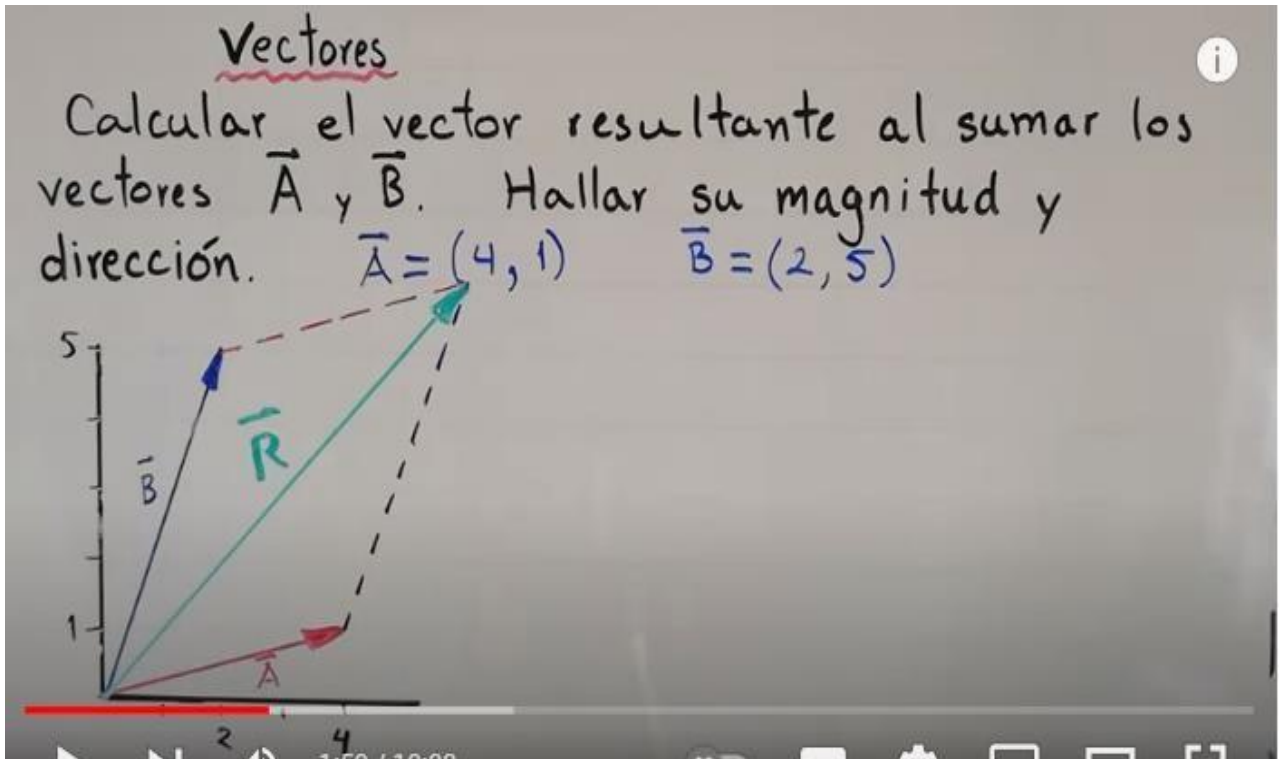 Vectores
Calcular el vector resultante al sumar los
vectores A⃗ y B⃗. Hallar su magnitud y
dirección. A⃗ = (4, 1) B⃗ = (2, 5)
5
R⃗
B⃗
1
A⃗
2 4